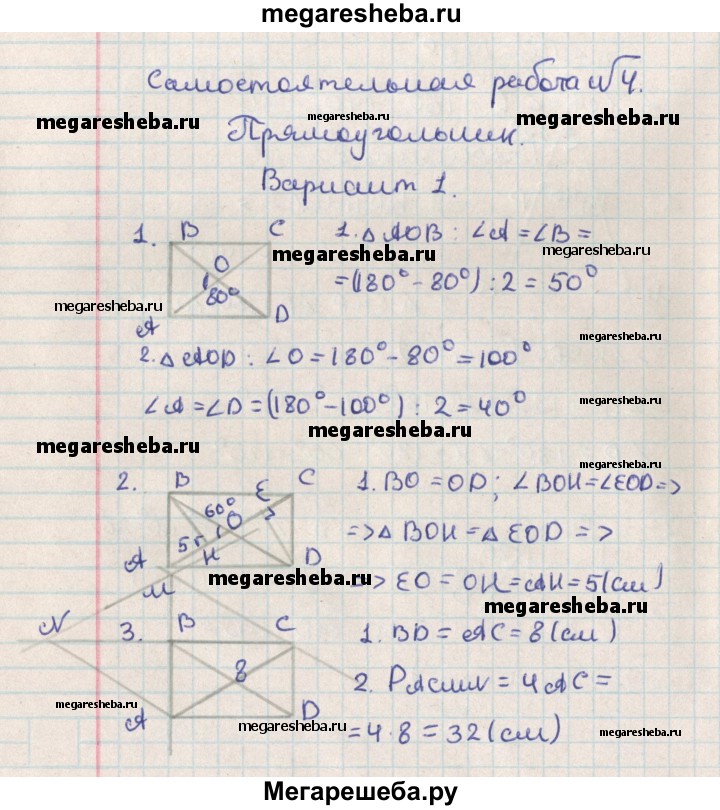 megaresheba.ru
Самостоятельная работа №4.
megaresheba.ru megaresheba.ru megaresheba.ru
Прямоугольник.
megaresheba.ru
Вариант 1.
1. B C 1. △AOB : ∠A = ∠B =
megaresheba.ru megaresheba.ru
O 80° = (180° - 80°) : 2 = 50°
megaresheba.ru
A D
2. △AOD : ∠O = 180° - 80° = 100°
megaresheba.ru
∠A = ∠D = (180° - 100°) : 2 = 40°
megaresheba.ru
megaresheba.ru
megaresheba.ru
2. B E C 1. BO = OD; ∠BOH = ∠EOD =>
60° O => △BOH = △EOD =>
5 H
A D
megaresheba.ru => EO = OH = AH = 5 (см)
M
megaresheba.ru
N 3. B C 1. BD = AC = 8 (см)
8 2. PACMN = 4AC =
megaresheba.ru megaresheba.ru
A D = 4 · 8 = 32 (см)
megaresheba.ru
megaresheba.ru
Мегарешеба.ру